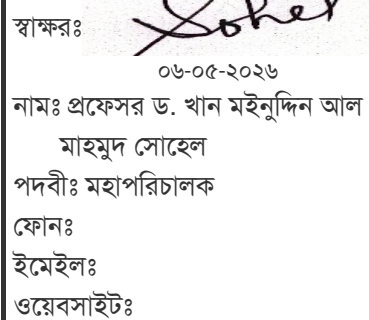 স্বাক্ষরঃ Sohel
০৬-০৫-২০২৬
নামঃ প্রফেসর ড. খান মইনুদ্দিন আল
মাহমুদ সোহেল
পদবীঃ মহাপরিচালক
ফোনঃ
ইমেইলঃ
ওয়েবসাইটঃ